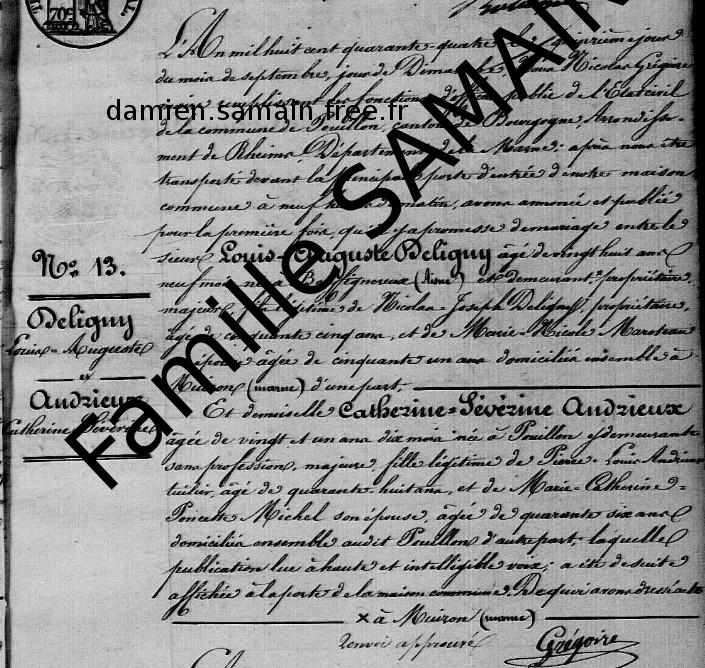 70c
L'An mil huit cent quarante-quatre le jour
du mois de septembre, jour de Dimanche Nicolas Grégoire
remplissant les fonctions d'officier public de l'Etat civil
damien.samain.free.fr
de la commune de Pouillon, canton de Bourgogne, Arrondisse-
ment de Rheims, Département de la Marne: après nous être
transporté devant la principale porte d'entrée de notre maison
commune à neuf du matin, avons annoncé et publié
pour la première fois, qu'il y a promesse de mariage entre le
sieur Louis-Auguste Deligny âgé de vingt huit ans
neuf mois né à (Aisne) et demeurant propriétaire,
majeur, fils légitime de Nicolas-Joseph Deligny, propriétaire,
âgé de cinquante cinq ans, et de Marie-Nicole Maroteau
épouse âgée de cinquante un ans domiciliés ensemble à
Muizon (marne) d'une part,
Et demoiselle Catherine=Sévérine Andrieux
âgée de vingt et un ans dix mois née à Pouillon y demeurante
sans profession, majeure, fille légitime de Pierre-Louis Andrieux
tuilier, âgé de quarante-huit ans, et de Marie-Catherine=
Poncette Michel son épouse, âgée de quarante six ans
domiciliés ensemble audit Pouillon d'autre part; laquelle
publication lue à haute et intelligible voix; a été de suite
affichée à la porte de la maison commune. De quoi avons dressé acte
x à Muizon (marne)
renvoi approuvé Grégoire
No. 13.
Deligny
Louis=Auguste
et
Andrieux
Catherine Sévérine
Famille SAMAIN